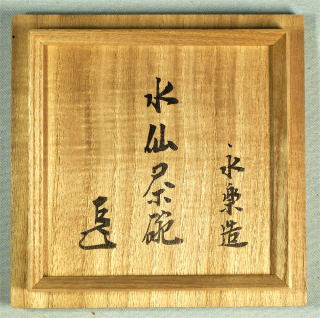 永樂造
水仙茶碗